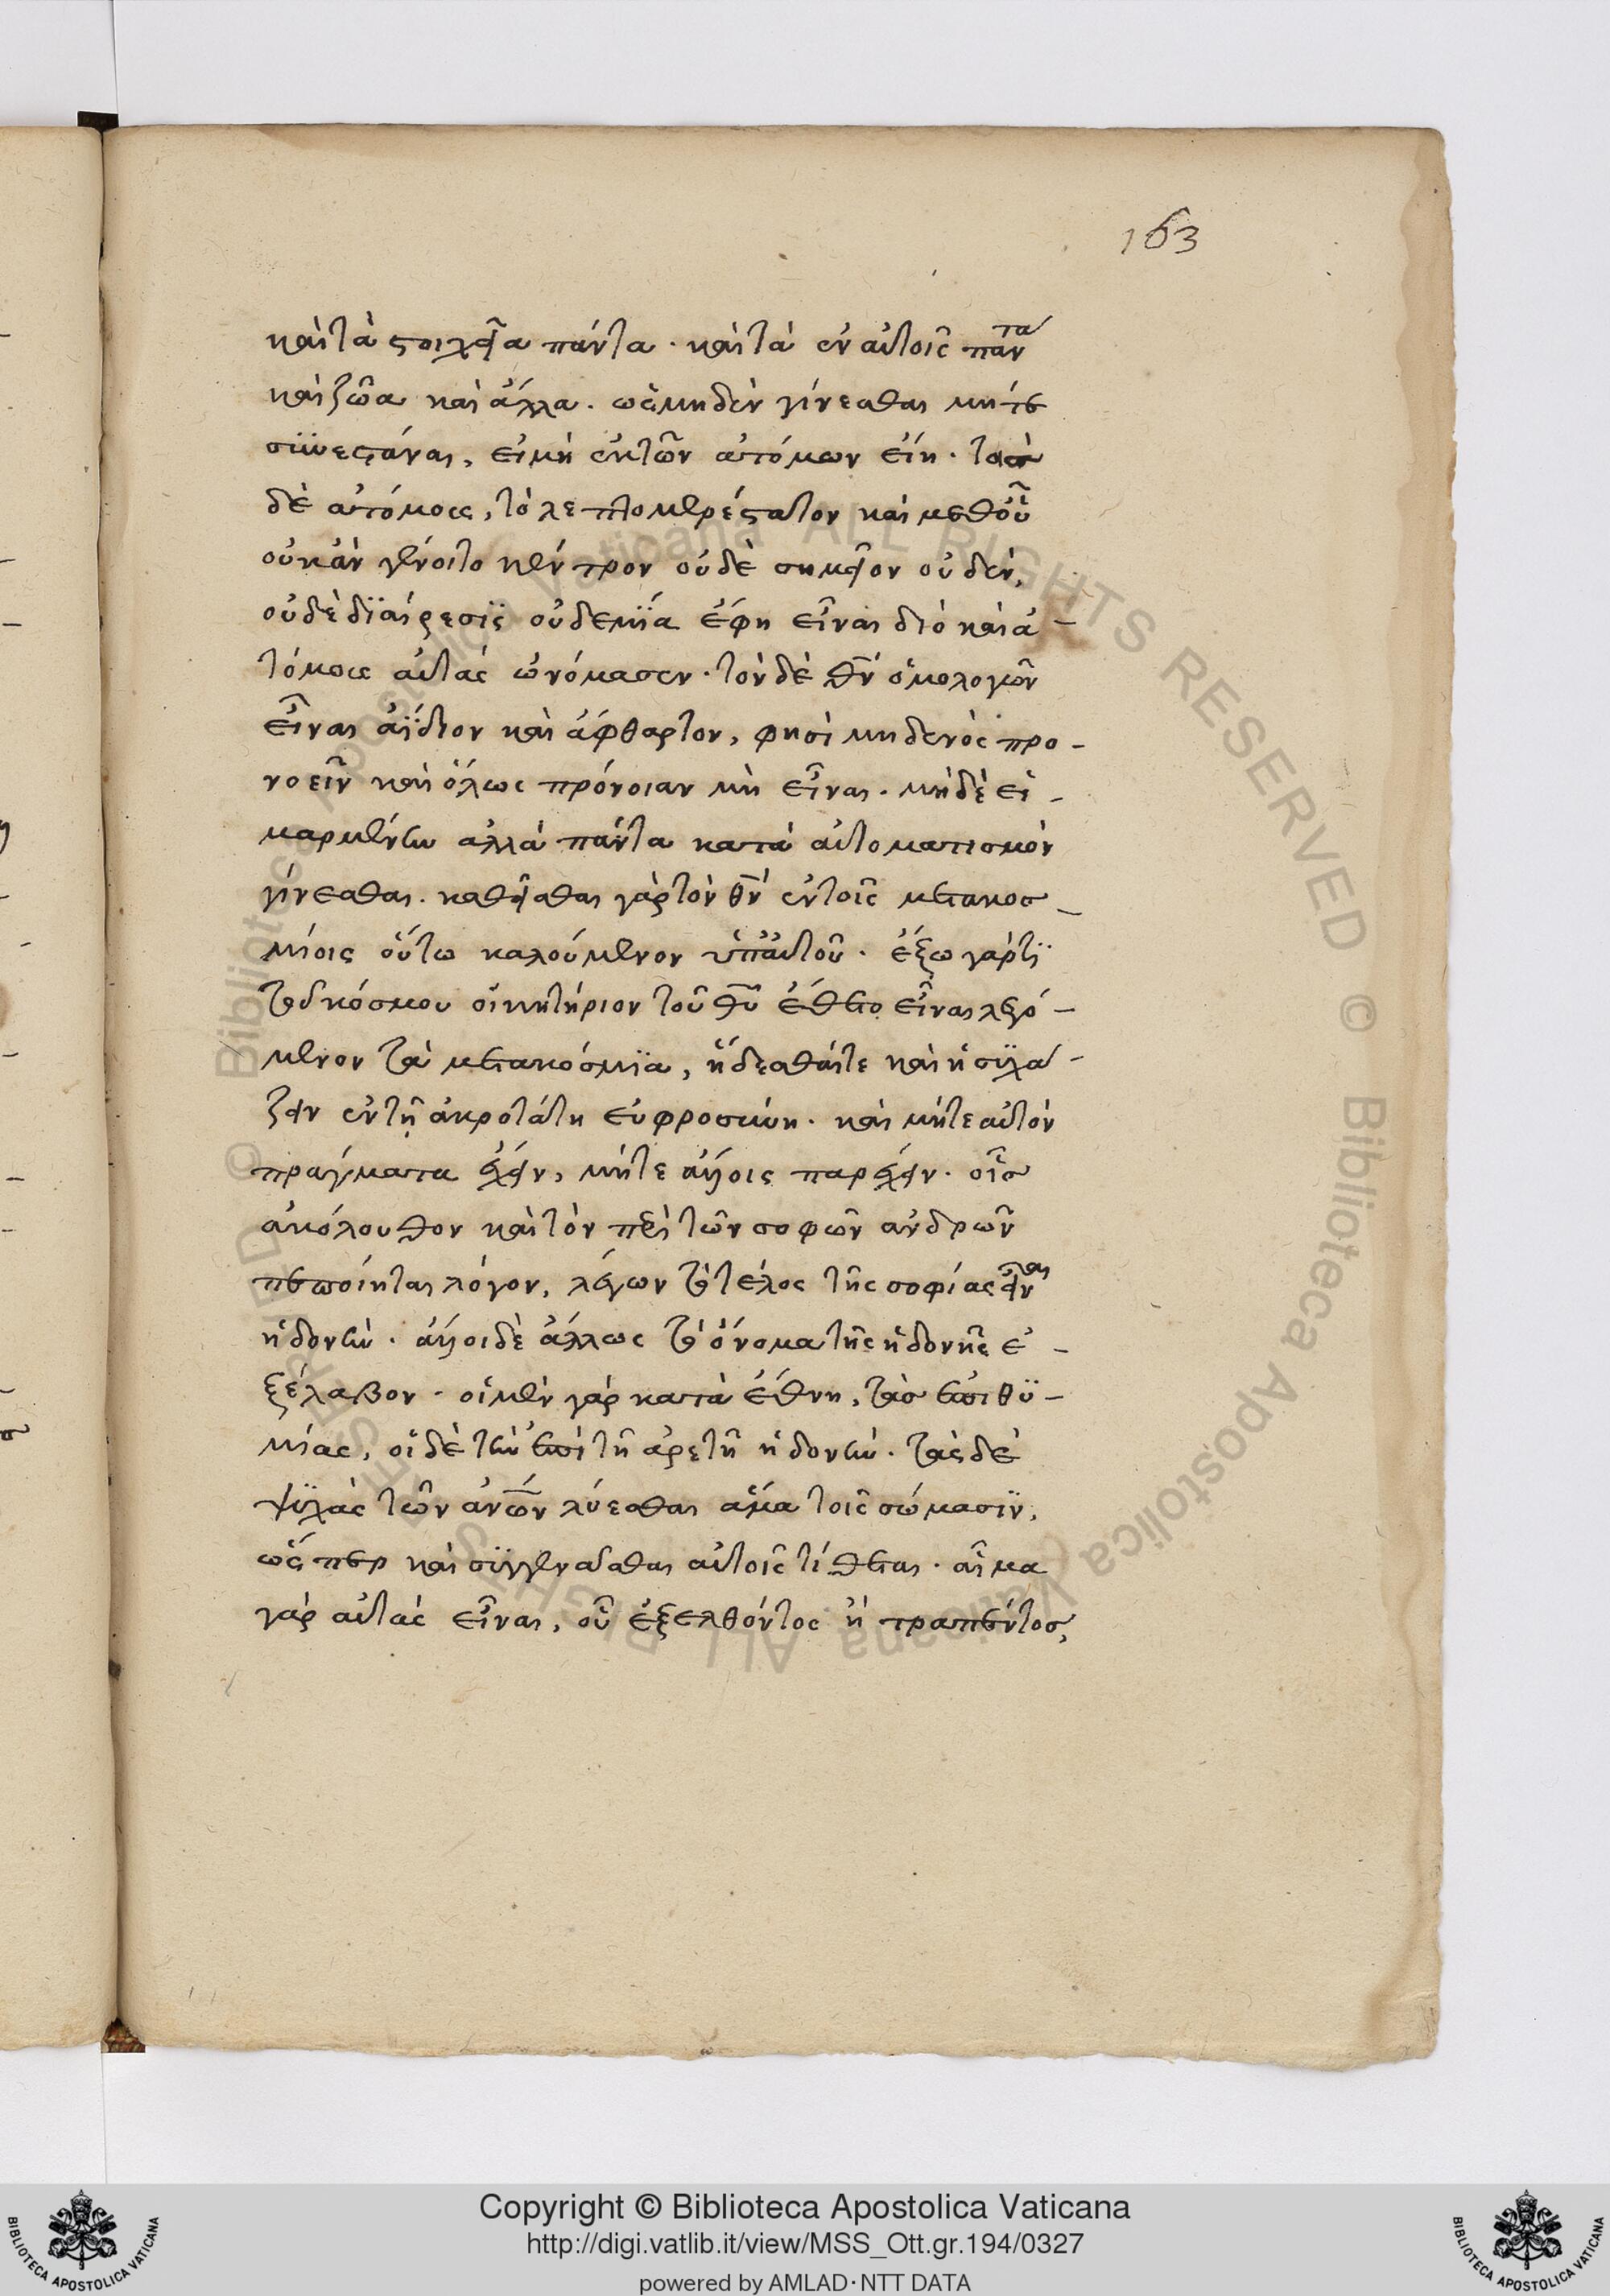 163
καὶ τὰ στοιχεῖα πάντα · καὶ τὰ ἐν αὐτοῖς πάντα
καὶ ζῶα καὶ ἄλλα · ὡς μηδὲν γίνεσθαι μήτε
συνεστάναι, εἰ μὴ ἐκ τῶν ἀτόμων εἴη · τὰσ
δὲ ἀτόμους, τὸ λεπτομερέστατον καὶ μεθ' οὗ
οὐκ ἂν γένοιτο κέντρον οὐδὲ σημεῖον οὐδὲν,
οὐδὲ διαίρεσις οὐδεμία ἔφη εἶναι διὸ καὶ ἀ-
τόμους αὐτὰς ὠνόμασεν · τὸν δὲ θν̅ ὁμολογῶν
εἶναι ἀΐδιον καὶ ἄφθαρτον, φησὶ μηδενὸς προ-
νοεῖν καὶ ὅλως πρόνοιαν μὴ εἶναι · μηδὲ εἱ-
μαρμένην ἀλλὰ πάντα κατὰ αὐτοματισμὸν
γίνεσθαι · καθῆσθαι γὰρ τὸν θν̅ ἐν τοῖς μετακοσ-
μίοις οὕτω καλούμενον ὑπ' αὐτοῦ · ἔξω γάρ τι
τοῦ κόσμου οἰκητήριον τοῦ θυ̅ ἔθετο εἶναι λεγό-
μενον τὰ μετακόσμια, ἥδεσθαί τε καὶ ἡσυχά-
ζειν ἐν τῇ ἀκροτάτη εὐφροσύνη · καὶ μήτε αὐτὸν
πράγματα ἔχειν, μήτε ἄλλοις παρέχειν · οἷσ
ἀκόλουθον καὶ τὸν περὶ τῶν σοφῶν ἀνδρῶν
πεποίηται λόγον, λέγων τὸ τέλος τῆς σοφίας εἶναι
ἡδονήν · ἄλλοι δὲ ἄλλως τὸ ὄνομα τῆς ἡδονῆς ἐ-
ξέλαβον · οἱ μὲν γὰρ κατὰ ἔθνη, τὰσ ἐπιθυ-
μίας, οἱ δὲ τὴν ἐπὶ τῇ ἀρετῇ ἡδονήν · τὰς δὲ
ψυχὰς τῶν ἀνων̅ λύεσθαι ἅμα τοῖς σώμασιν,
ὥσπερ καὶ συγγενᾶσθαι αὐτοῖς τίθεται · αἷμα
γὰρ αὐτὰς εἶναι, οὗ ἐξελθόντος ἢ τραπέντοσ,
Copyright © Biblioteca Apostolica Vaticana
http://digi.vatlib.it/view/MSS_Ott.gr.194/0327
powered by AMLAD·NTT DATA